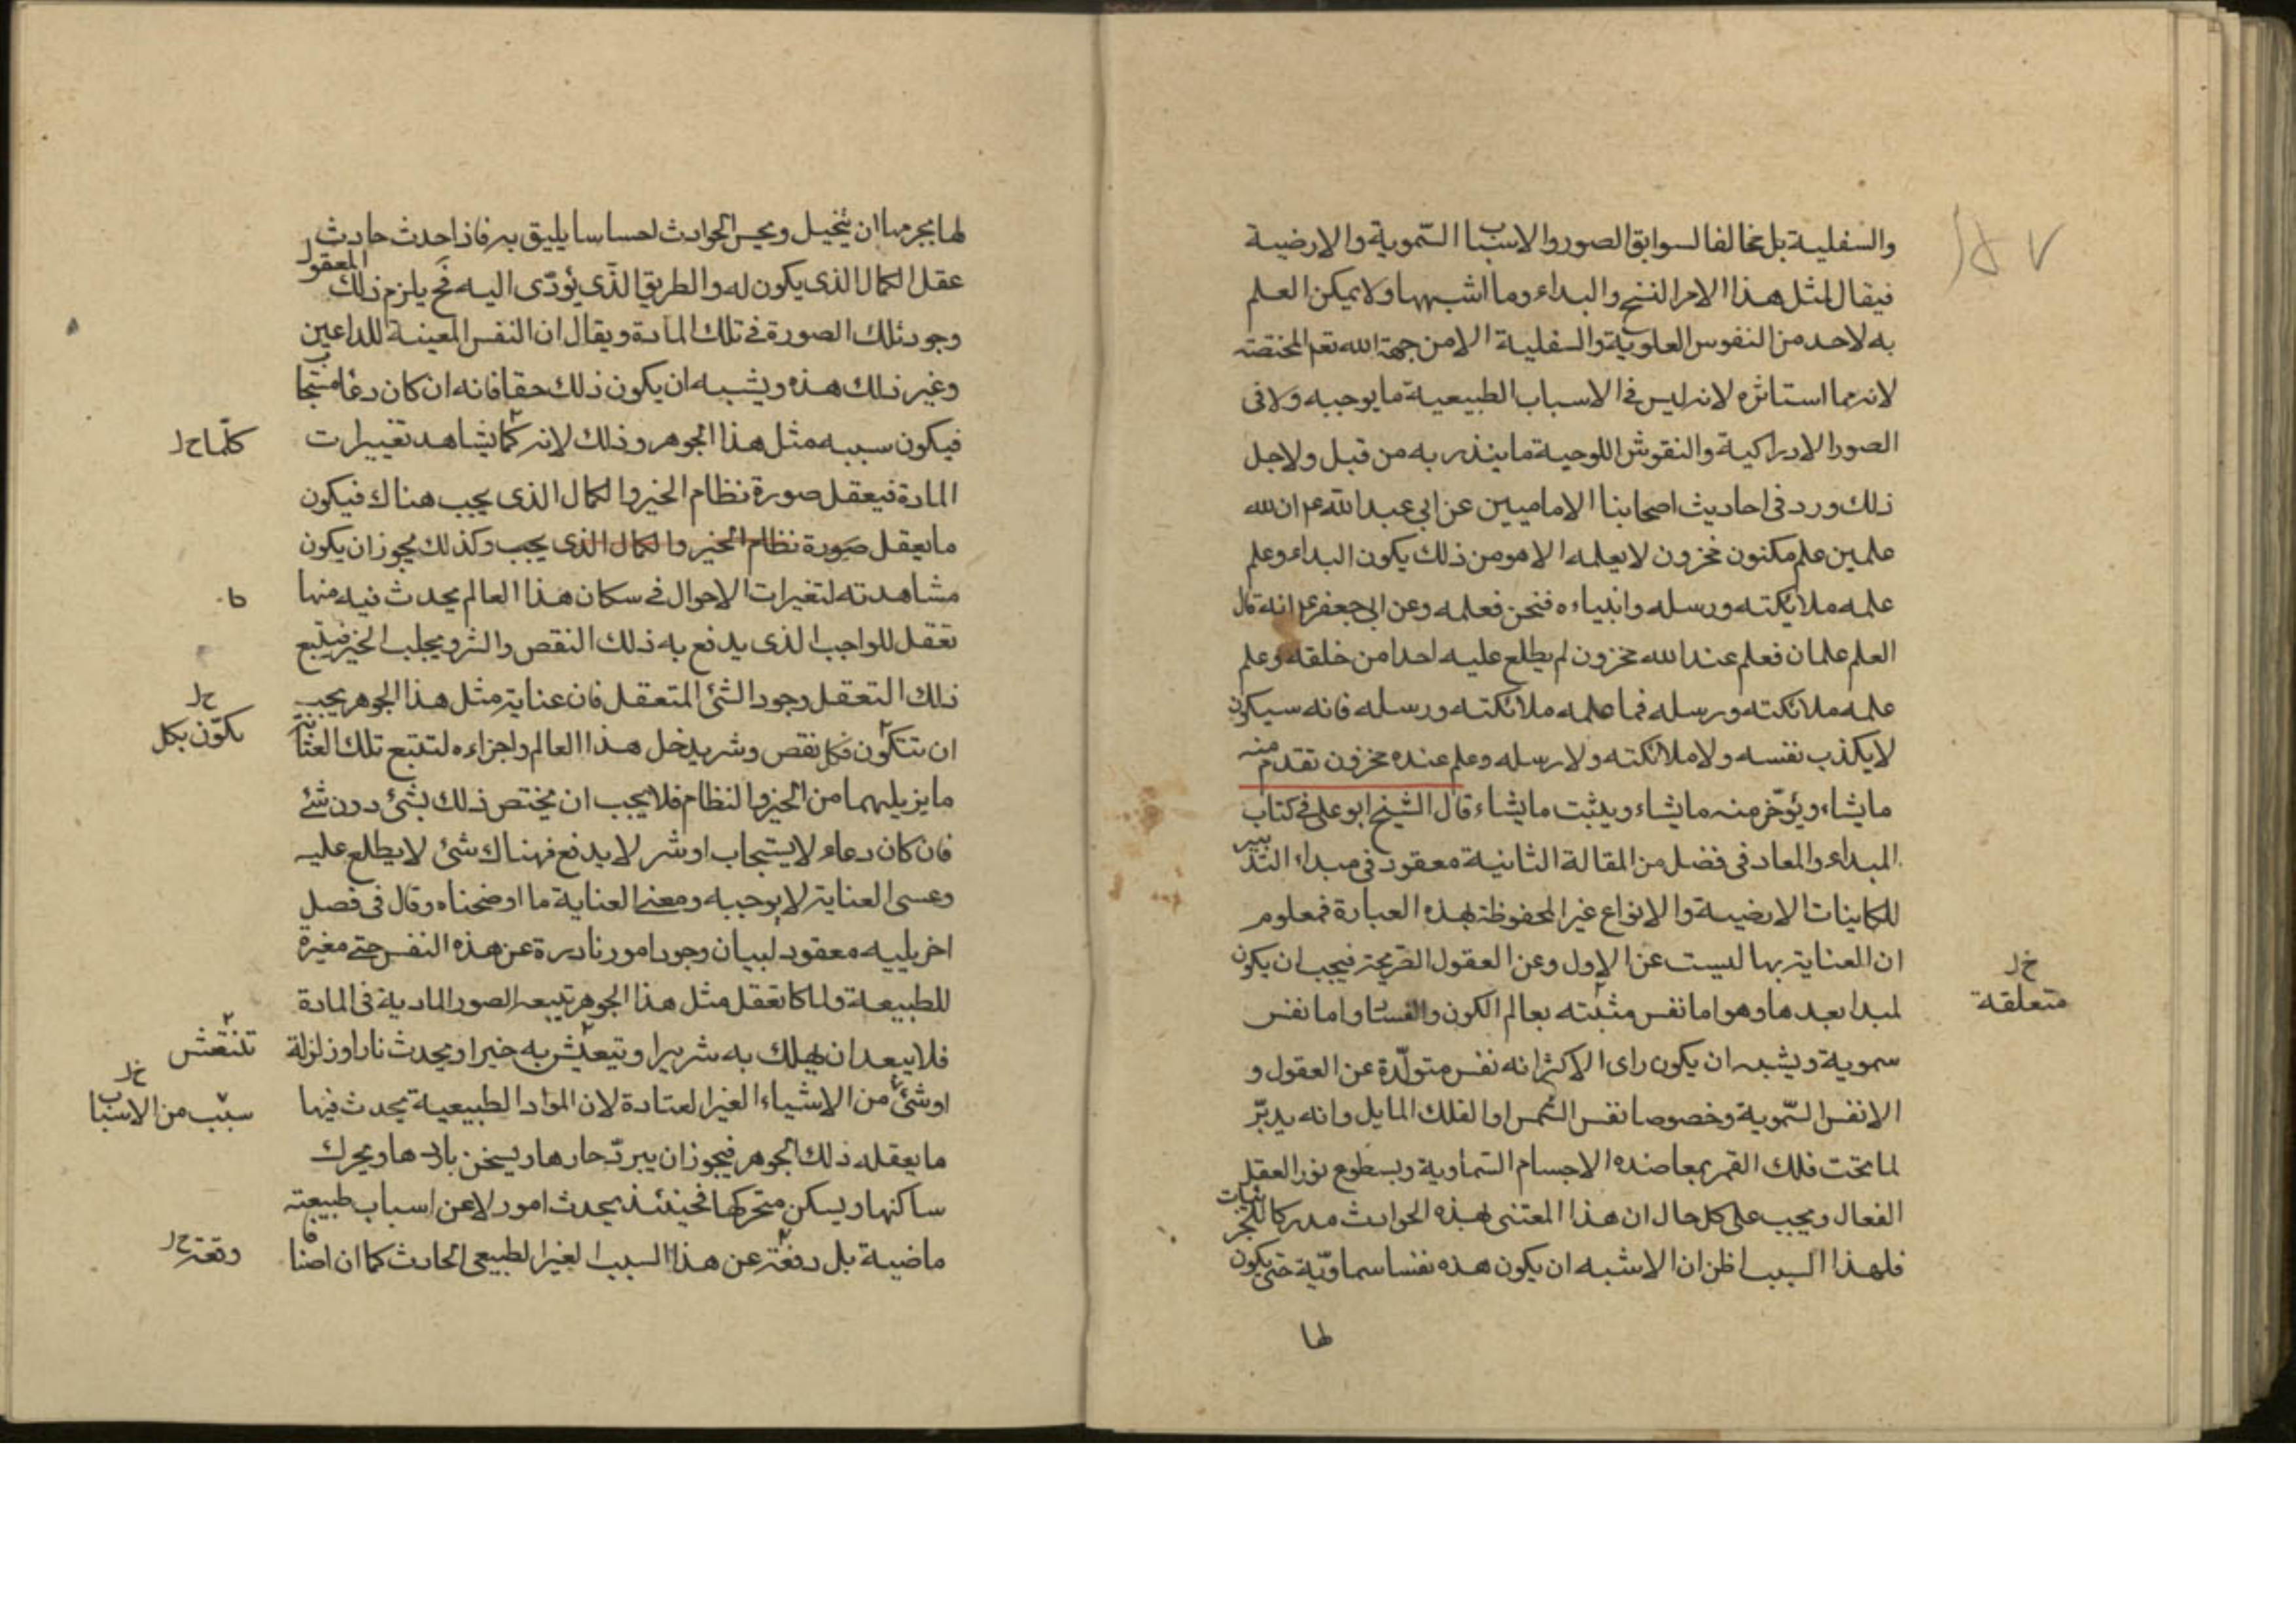 والسفلية بل مخالفا لسوابق الصور والاسباب السّموية والارضية
فيقال لمثل هذا الامر النسخ والبداء وما اشبهها ولا يمكن العلم
به لاحد من النفوس العلوية والسفلية الا من جهة الله تعم المختصة
لانه مما استاثره لانه ليس فى الاسباب الطبيعية ما يوجبه ولا فى
الصور الادراكية والنقوش اللوحية ما ينذر به من قبل ولاجل
ذلك ورد فى احاديث اصحابنا الاماميين عن ابى عبد الله عم ان لله
علمين علم مكنون مخزون لا يعلمه الا هو ومن ذلك يكون البداء وعلم
علمه ملائكته ورسله وانبياءه فنحن فعلمه وعن ابى جعفر عم انه قال
العلم علمان فعلم عند الله مخزون لم يطلع عليه احدا من خلقه وعلم
علمه ملائكته ورسله فما علمه ملائكته ورسله فانه سيكون
لا يكذب نفسه ولا ملائكته ولا رسله وعلم عنده مخزون تقدم منه
ما يشاء ويؤخر منه ما يشاء ويثبت ما يشاء قال الشيخ ابو على فى كتاب
المبداء والمعاد فى فضل من المقالة الثانية معقود فى مبداء التدبير
للكاينات الارضية والانواع غير المحفوظة بهذه العبارة فمعلوم
ان العناية بها ليست عن الاول وعن العقول الصريحة فيجب ان يكون
لمبدا بعدها وهو اما نفس مثبته بعالم الكون والفساد واما نفس
خ ل
متعلقة
سموية ويشبه ان يكون راى الاكثر انه نفس متولّدة عن العقول و
الانفس السّموية وخصوصا نفس الشمس او الفلك المايل وانه يدبّر
لما تحت فلك القمر بمعاضدة الاجسام السّماوية وبسطوع نور العقل
الفعال ويجب على كل حال ان هذا المعتنى بهذه الحوادث مدركا للجزئيات
فلهذا السبب اظن ان الاشبه ان يكون هذه نفسا سماويّة حتى يكون
لها
لها بجرمها ان يتخيل ويحس الحوادث احساسا يليق به فاذا حدث حادث
عقل الكمال الذى يكون له والطريق الّذى يؤدّى اليه فح يلزم ذلك المعقول
وجود تلك الصورة فى تلك المادة ويقال ان النفس المعينة للداعين
وغير ذلك هذه ويشبه ان يكون ذلك حقا فانه ان كان دعا مستجاب
فيكون سببه مثل هذا الجوهر وذلك لانه كما يشاهد تغييرات
كلّما خ ل
المادة فيعقل صورة نظام الخير والكمال الذى يجب هناك فيكون
ما يعقل صورة نظام الخير والكمال الذى يجب وكذلك يجوز ان يكون
مشاهدته لتغيرات الاحوال فى سكان هذا العالم يحدث فيه منها
تعقل للواجب الذى يدفع به ذلك النقص والشر ويجلب الخير فيتبع
ذلك التعقل وجود الشئ المتعقل فان عناية مثل هذا الجوهر يجب
ان تتكون فكل نقص وشر يدخل هذا العالم واجزاءه لتتبع تلك العناية
خ ل
يكوّن بكل
ما يزيلهما من الخير والنظام فلا يجب ان يختص ذلك بشئ دون شئ
فان كان دعاء لا يستجاب او شر لا يدفع فهناك شئ لا يطلع عليه
وعسى العناية لا يوجبه ومعنى العناية ما اوضحناه وقال فى فصل
اخر يليه معقود لبيان وجود امور نادرة عن هذه النفس حتى مغيرة
للطبيعة ولما كا تعقل مثل هذا الجوهر يتبعه الصور المادية فى المادة
فلا يبعد ان يهلك به شريرا ويتعيش به خيرا ويحدث نارا وزلزلة
تنتعش
او شئ من الاشياء الغير المعتادة لان المواد الطبيعية يحدث فيها
خ ل
سبب من الاسباب
ما يعقله ذلك الجوهر فيجوز ان يبرّد حارها ويسخن باردها ويحرك
ساكنها ويسكن متحركها فحينئذ يحدث امور لا عن اسباب طبيعته
ماضية بل دفعة عن هذا السبب الغير الطبيعى الحادث كما ان اصنا